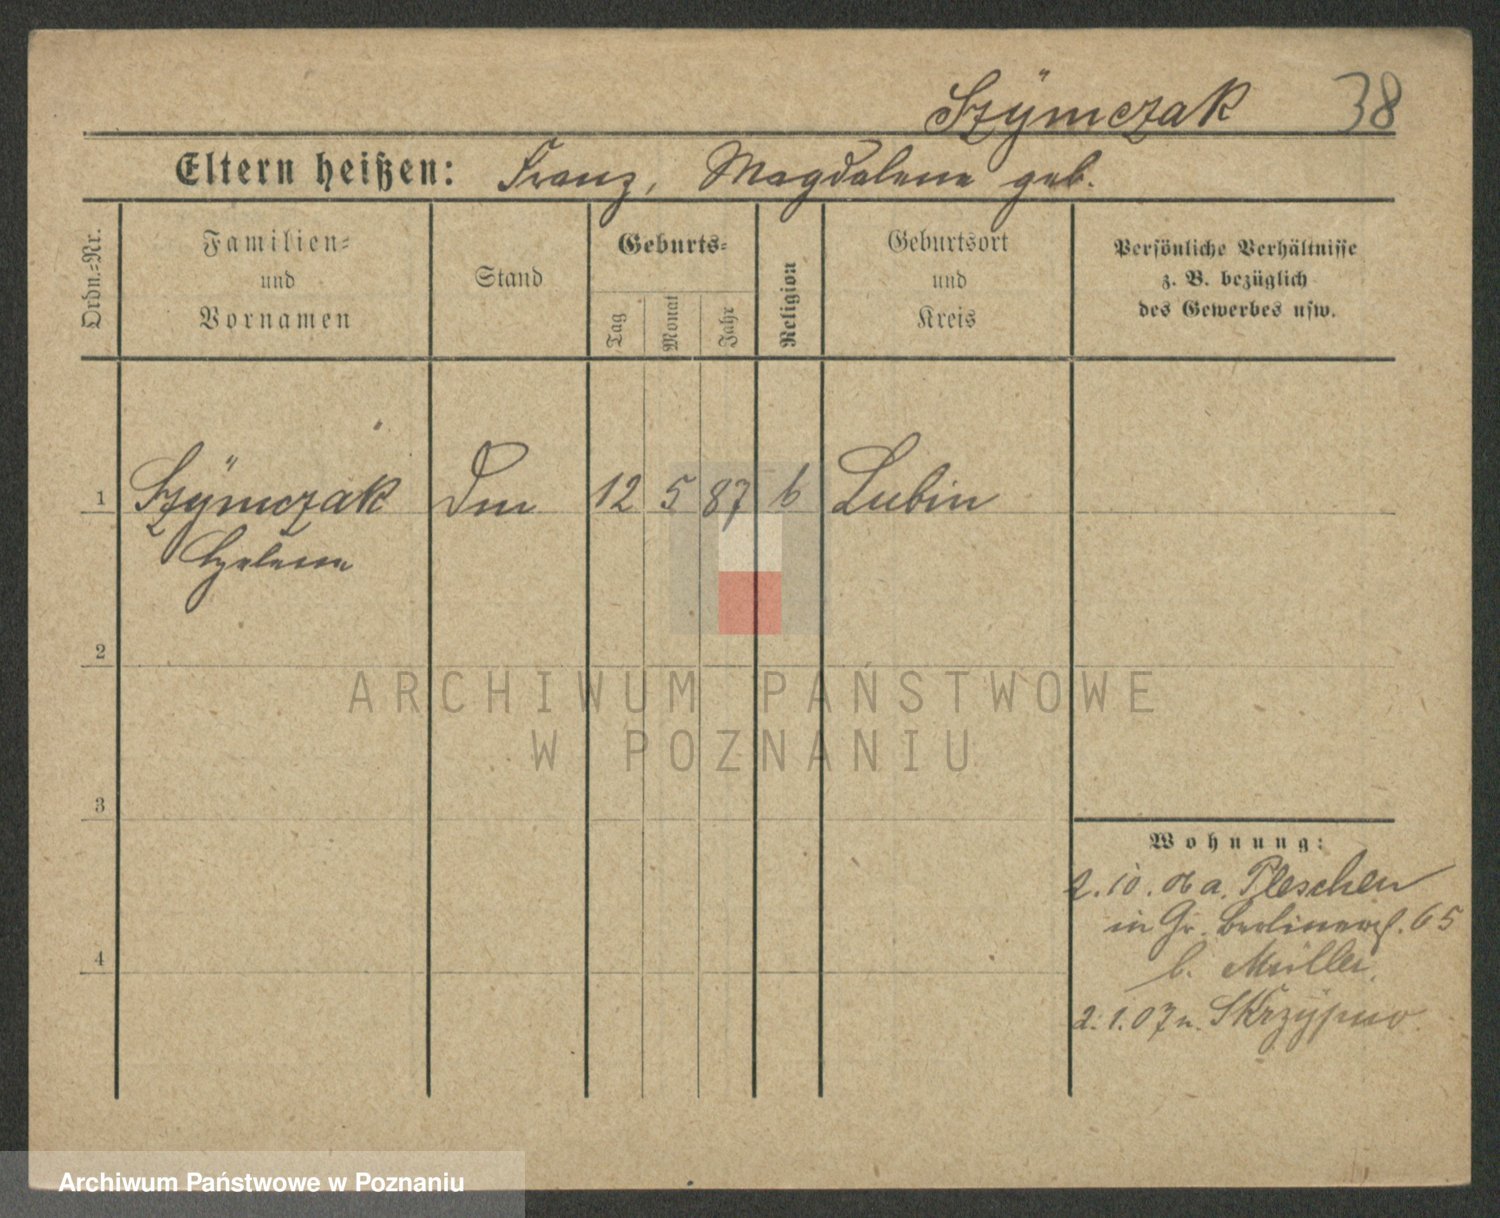 Szÿmczak 38
Eltern heißen: Franz, Magdalene geb.
Ordn.-Nr.
Familien-
und
Vornamen
Stand
Geburts-
Tag
Monat
Jahr
Religion
Geburtsort
und
Kreis
Persönliche Verhältnisse
z. B. bezüglich
des Gewerbes usw.
1 Szÿmczak 12 5 87 Lubin
Helene
2
3
4
Wohnung:
2. 10. 06 a. Pleschen
in Gr. Berlinerst. 65
b. Müller
2. 1. 07 n. Skrzÿpno
ARCHIWUM PAŃSTWOWE
W POZNANIU
Archiwum Państwowe w Poznaniu